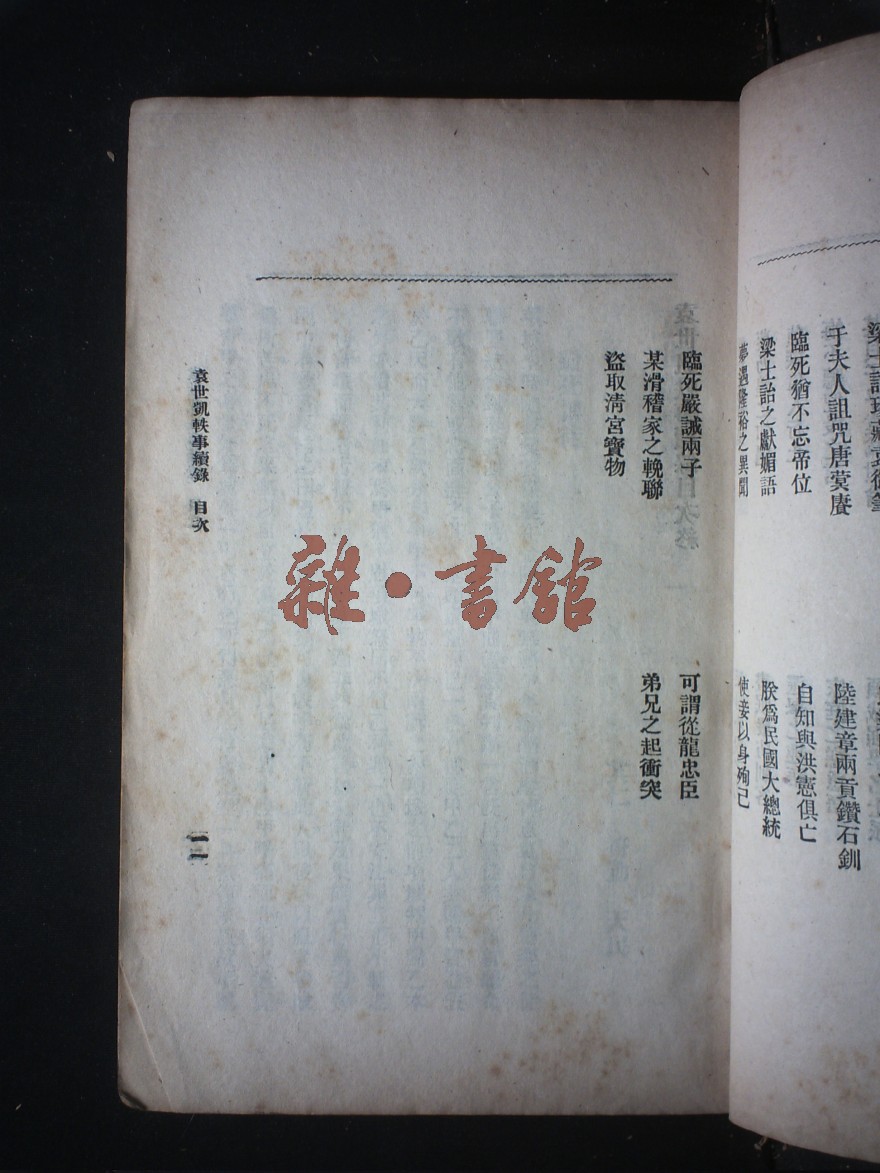 于夫人詛咒唐蓂賡
陸建章兩貢鑽石釧
臨死猶不忘帝位
自知與洪憲俱亡
梁士詒之獻媚語
朕爲民國大總統
夢遇隆裕之異聞
使妾以身殉己
臨死嚴誡兩子
可謂從龍忠臣
某滑稽家之輓聯
弟兄之起衝突
盜取淸宮寶物
袁世凱軼事續錄 目次
雜·書館